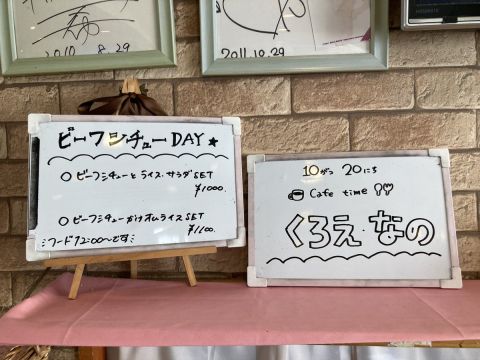 2010.8.29
2011.10.29
ビーフシチューDAY★
○ビーフシチューとライス・サラダSET
¥1000.
○ビーフシチューがけオムライスSET
¥1100.
:フード12:00〜です:
10がつ 20にち
Cafe time
くろえ なの